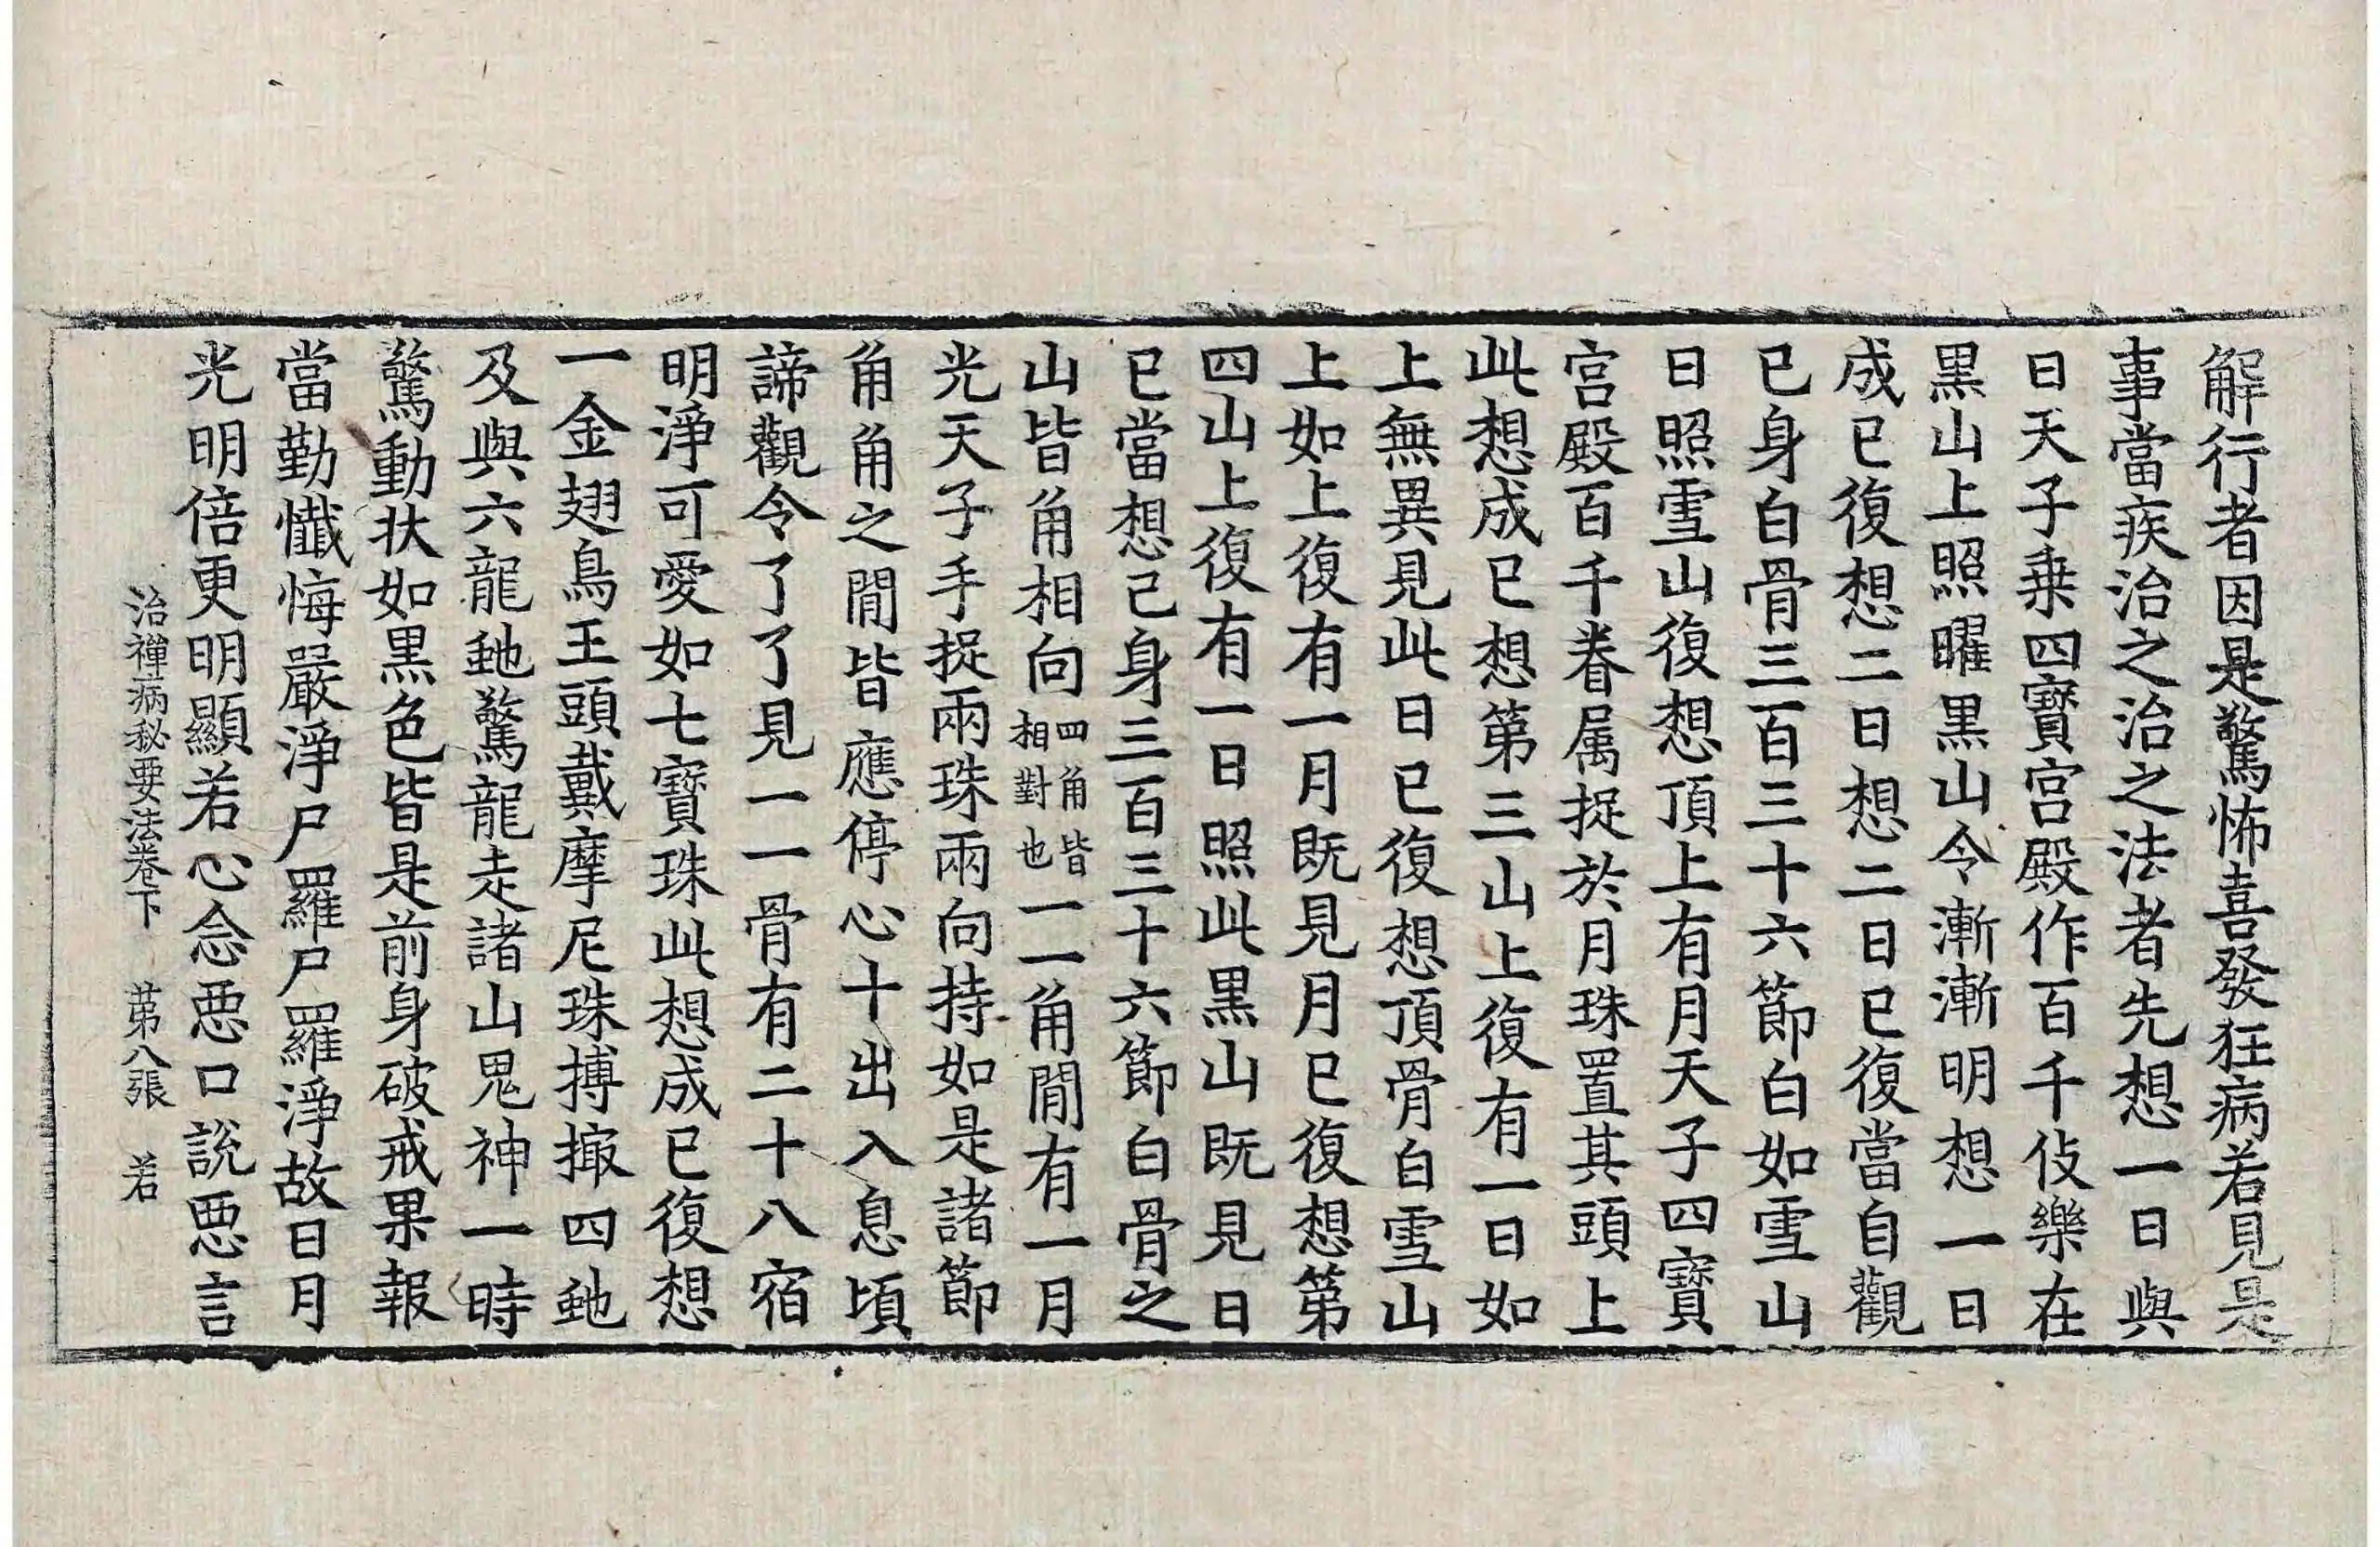 解行者因是驚怖喜發狂病若見是
事當疾治之治之法者先想一日與
日天子乗四寶宮殿作百千伎樂在
黒山上照曜黒山令漸漸明想一日
成已復想二日想二日已復當自觀
已身白骨三百三十六節白如雪山
日照雪山復想頂上有月天子四寶
宮殿百千眷属捉於月珠置其頭上
此想成已想第三山上復有一日如
上無異見此日已復想頂骨白雪山
上如上復有一月既見月已復想第
四山上復有一日照此黒山既見日
已當想己身三百三十六節白骨之
山皆角相向四角皆相對也一一角間有一月
光天子手捉兩珠兩向持如是諸節
角角之間皆應停心十出入息頃
諦觀令了了見一一骨有二十八宿
明淨可愛如七寶珠此想成已復想
一金翅鳥王頭戴摩尼珠搏撮四虵
及與六龍虵驚龍走諸山鬼神一時
驚動状如黒色皆是前身破戒果報
當勤懺悔嚴淨尸羅尸羅淨故日月
光明倍更明顯若心念惡口說惡言
治禪病秘要法卷下 第八張 若